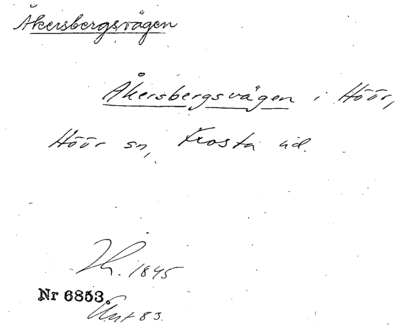 Åkersbergsvägen
Åkersbergsvägen i Höör,
Höör sn, Frosta hd.
Th. 1845
Nr 6853.
Ant 83.